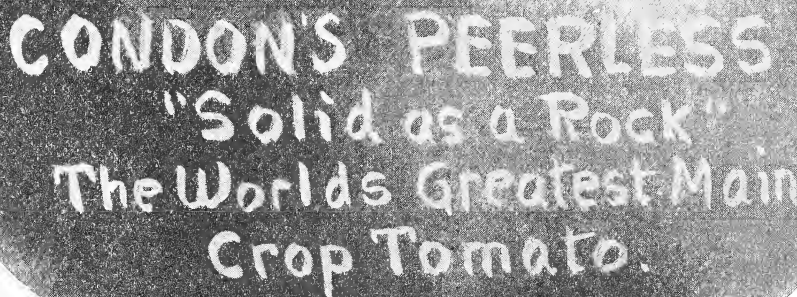 CONDON'S PEERLESS
"Solid as a Rock"
The Worlds Greatest Main
Crop Tomato.